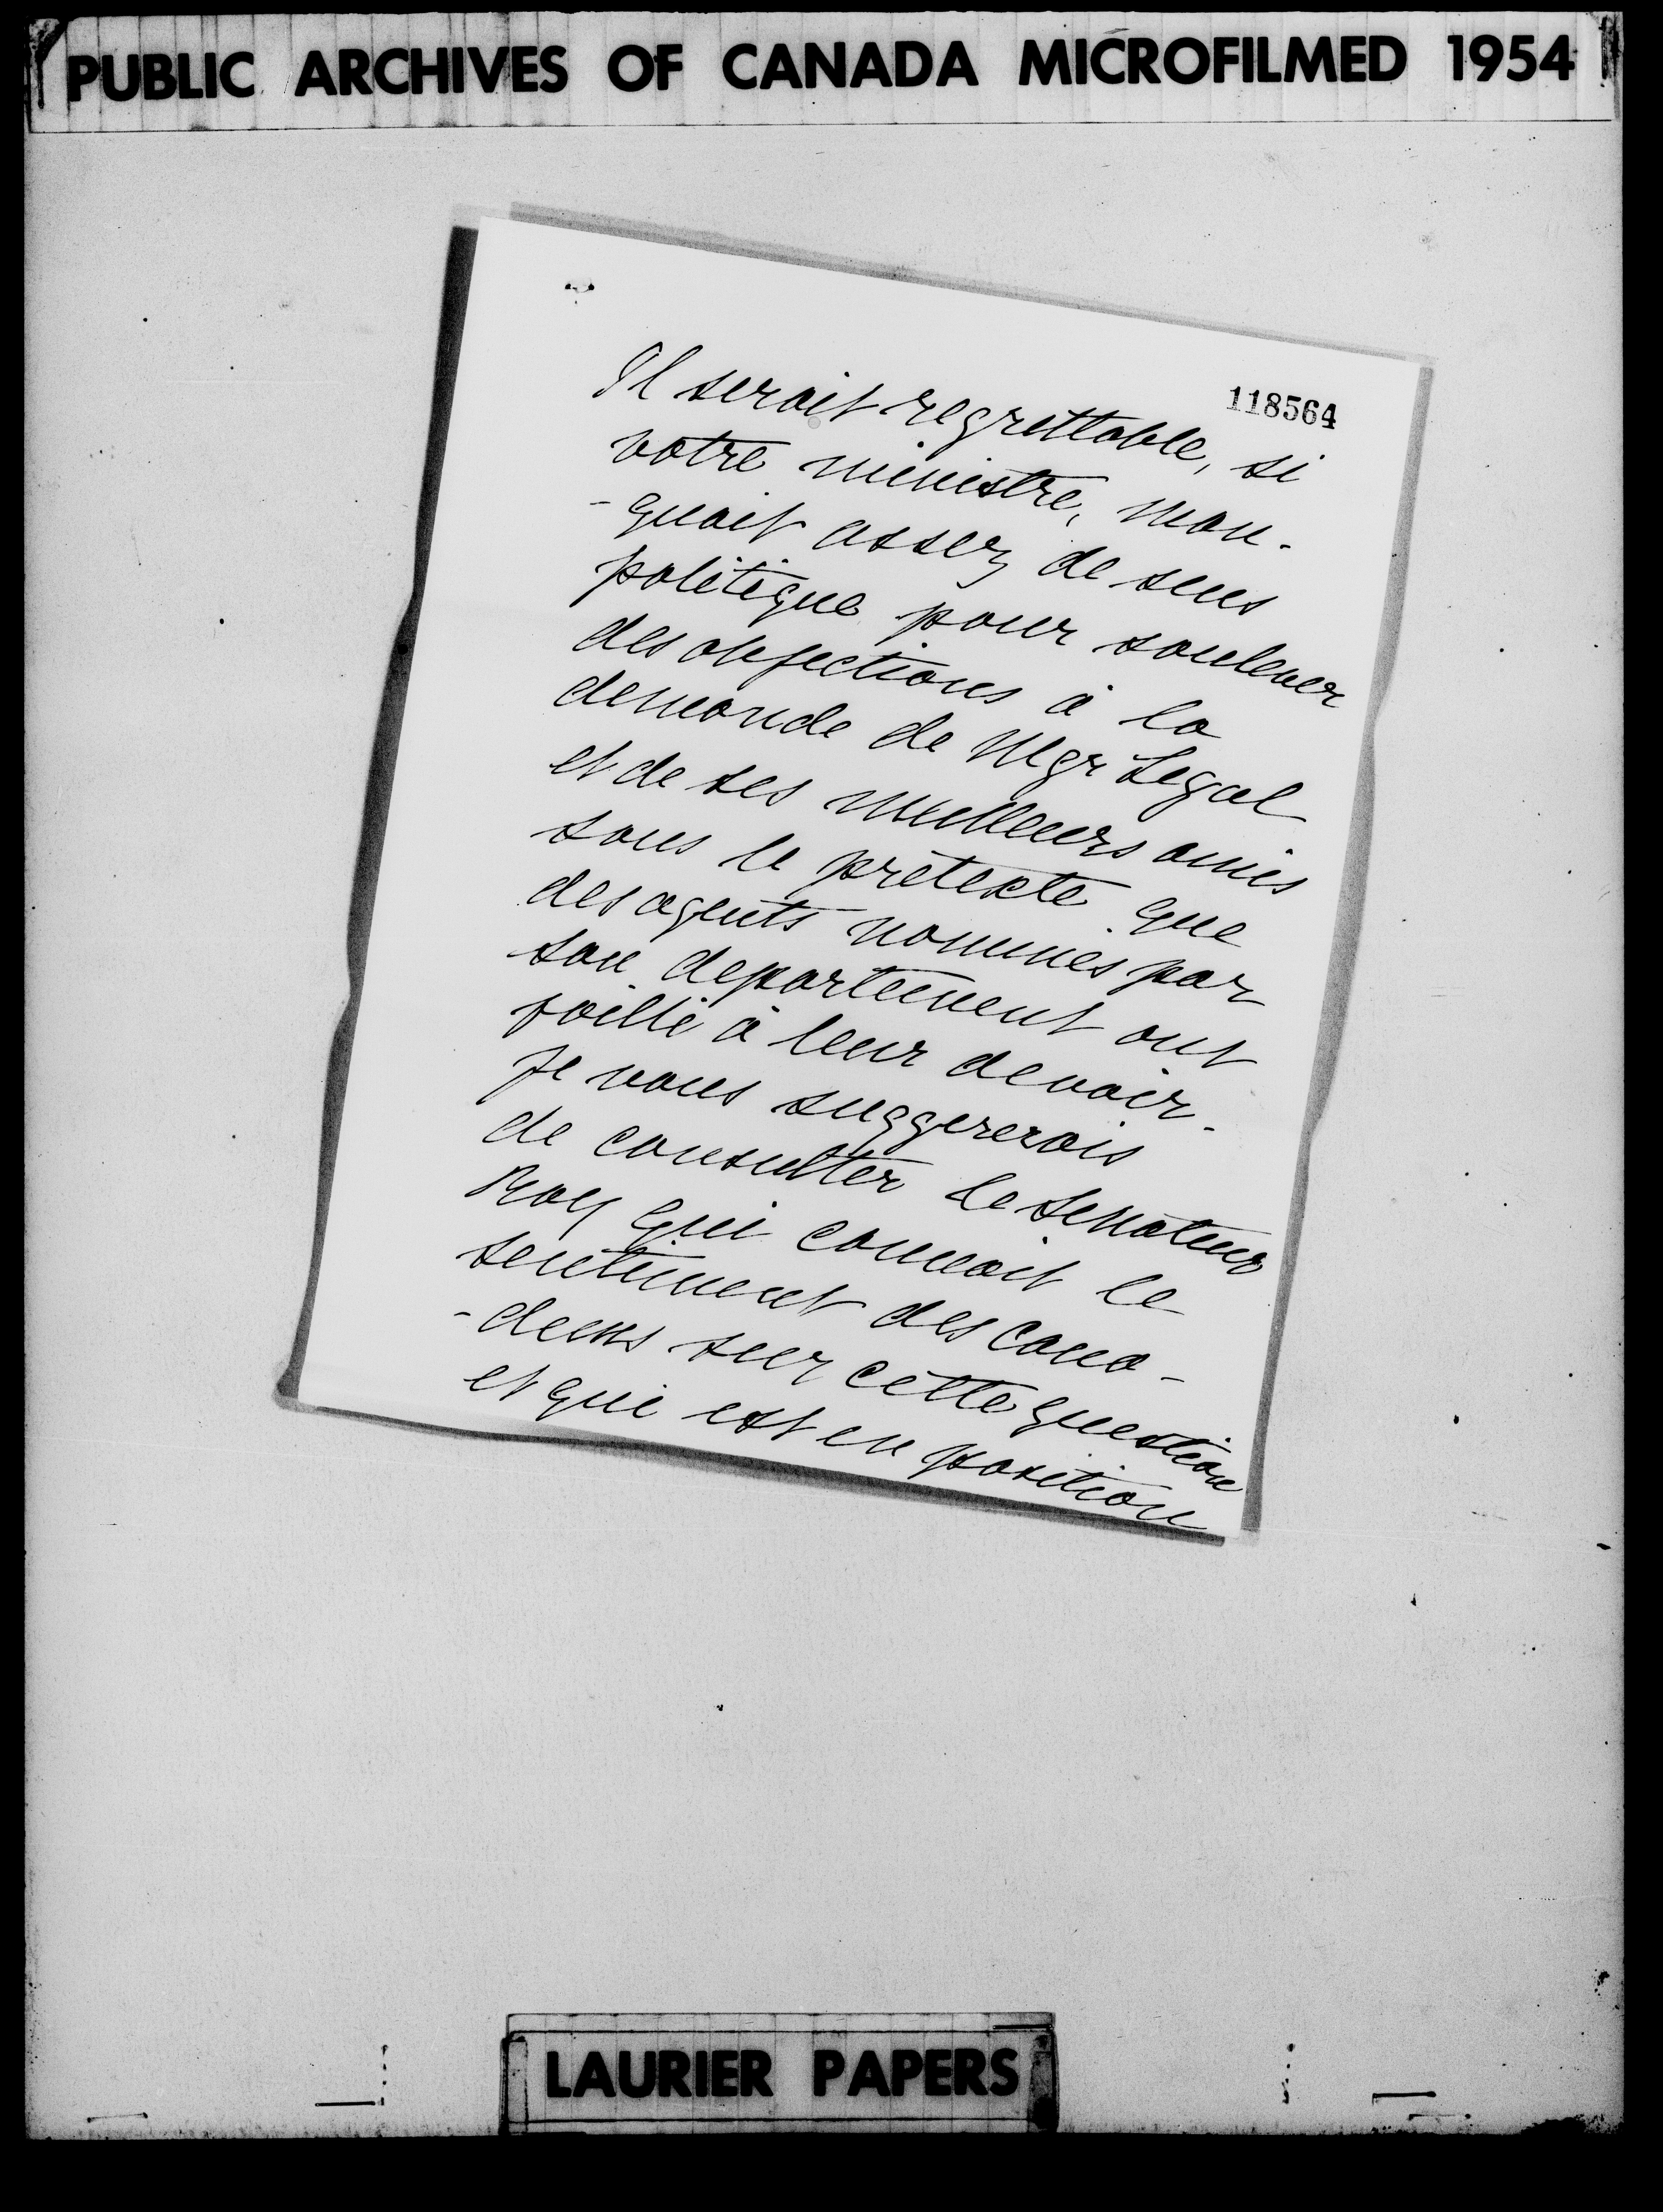 PUBLIC ARCHIVES OF CANADA MICROFILMED 1954
118564
Il serait regrettable, si
votre ministre, man-
-quait assez de sens
politique pour soulever
des objections à la
demande de Mgr Legal
et de ses meilleurs amis
sous le prétexte que
des agents nommés par
son departement ont
failli à leur devoir.
Je vous suggererais
de consulter le senateur
Roy qui connait le
sentiment des cana-
-diens sur cette question
et qui est en position
LAURIER PAPERS